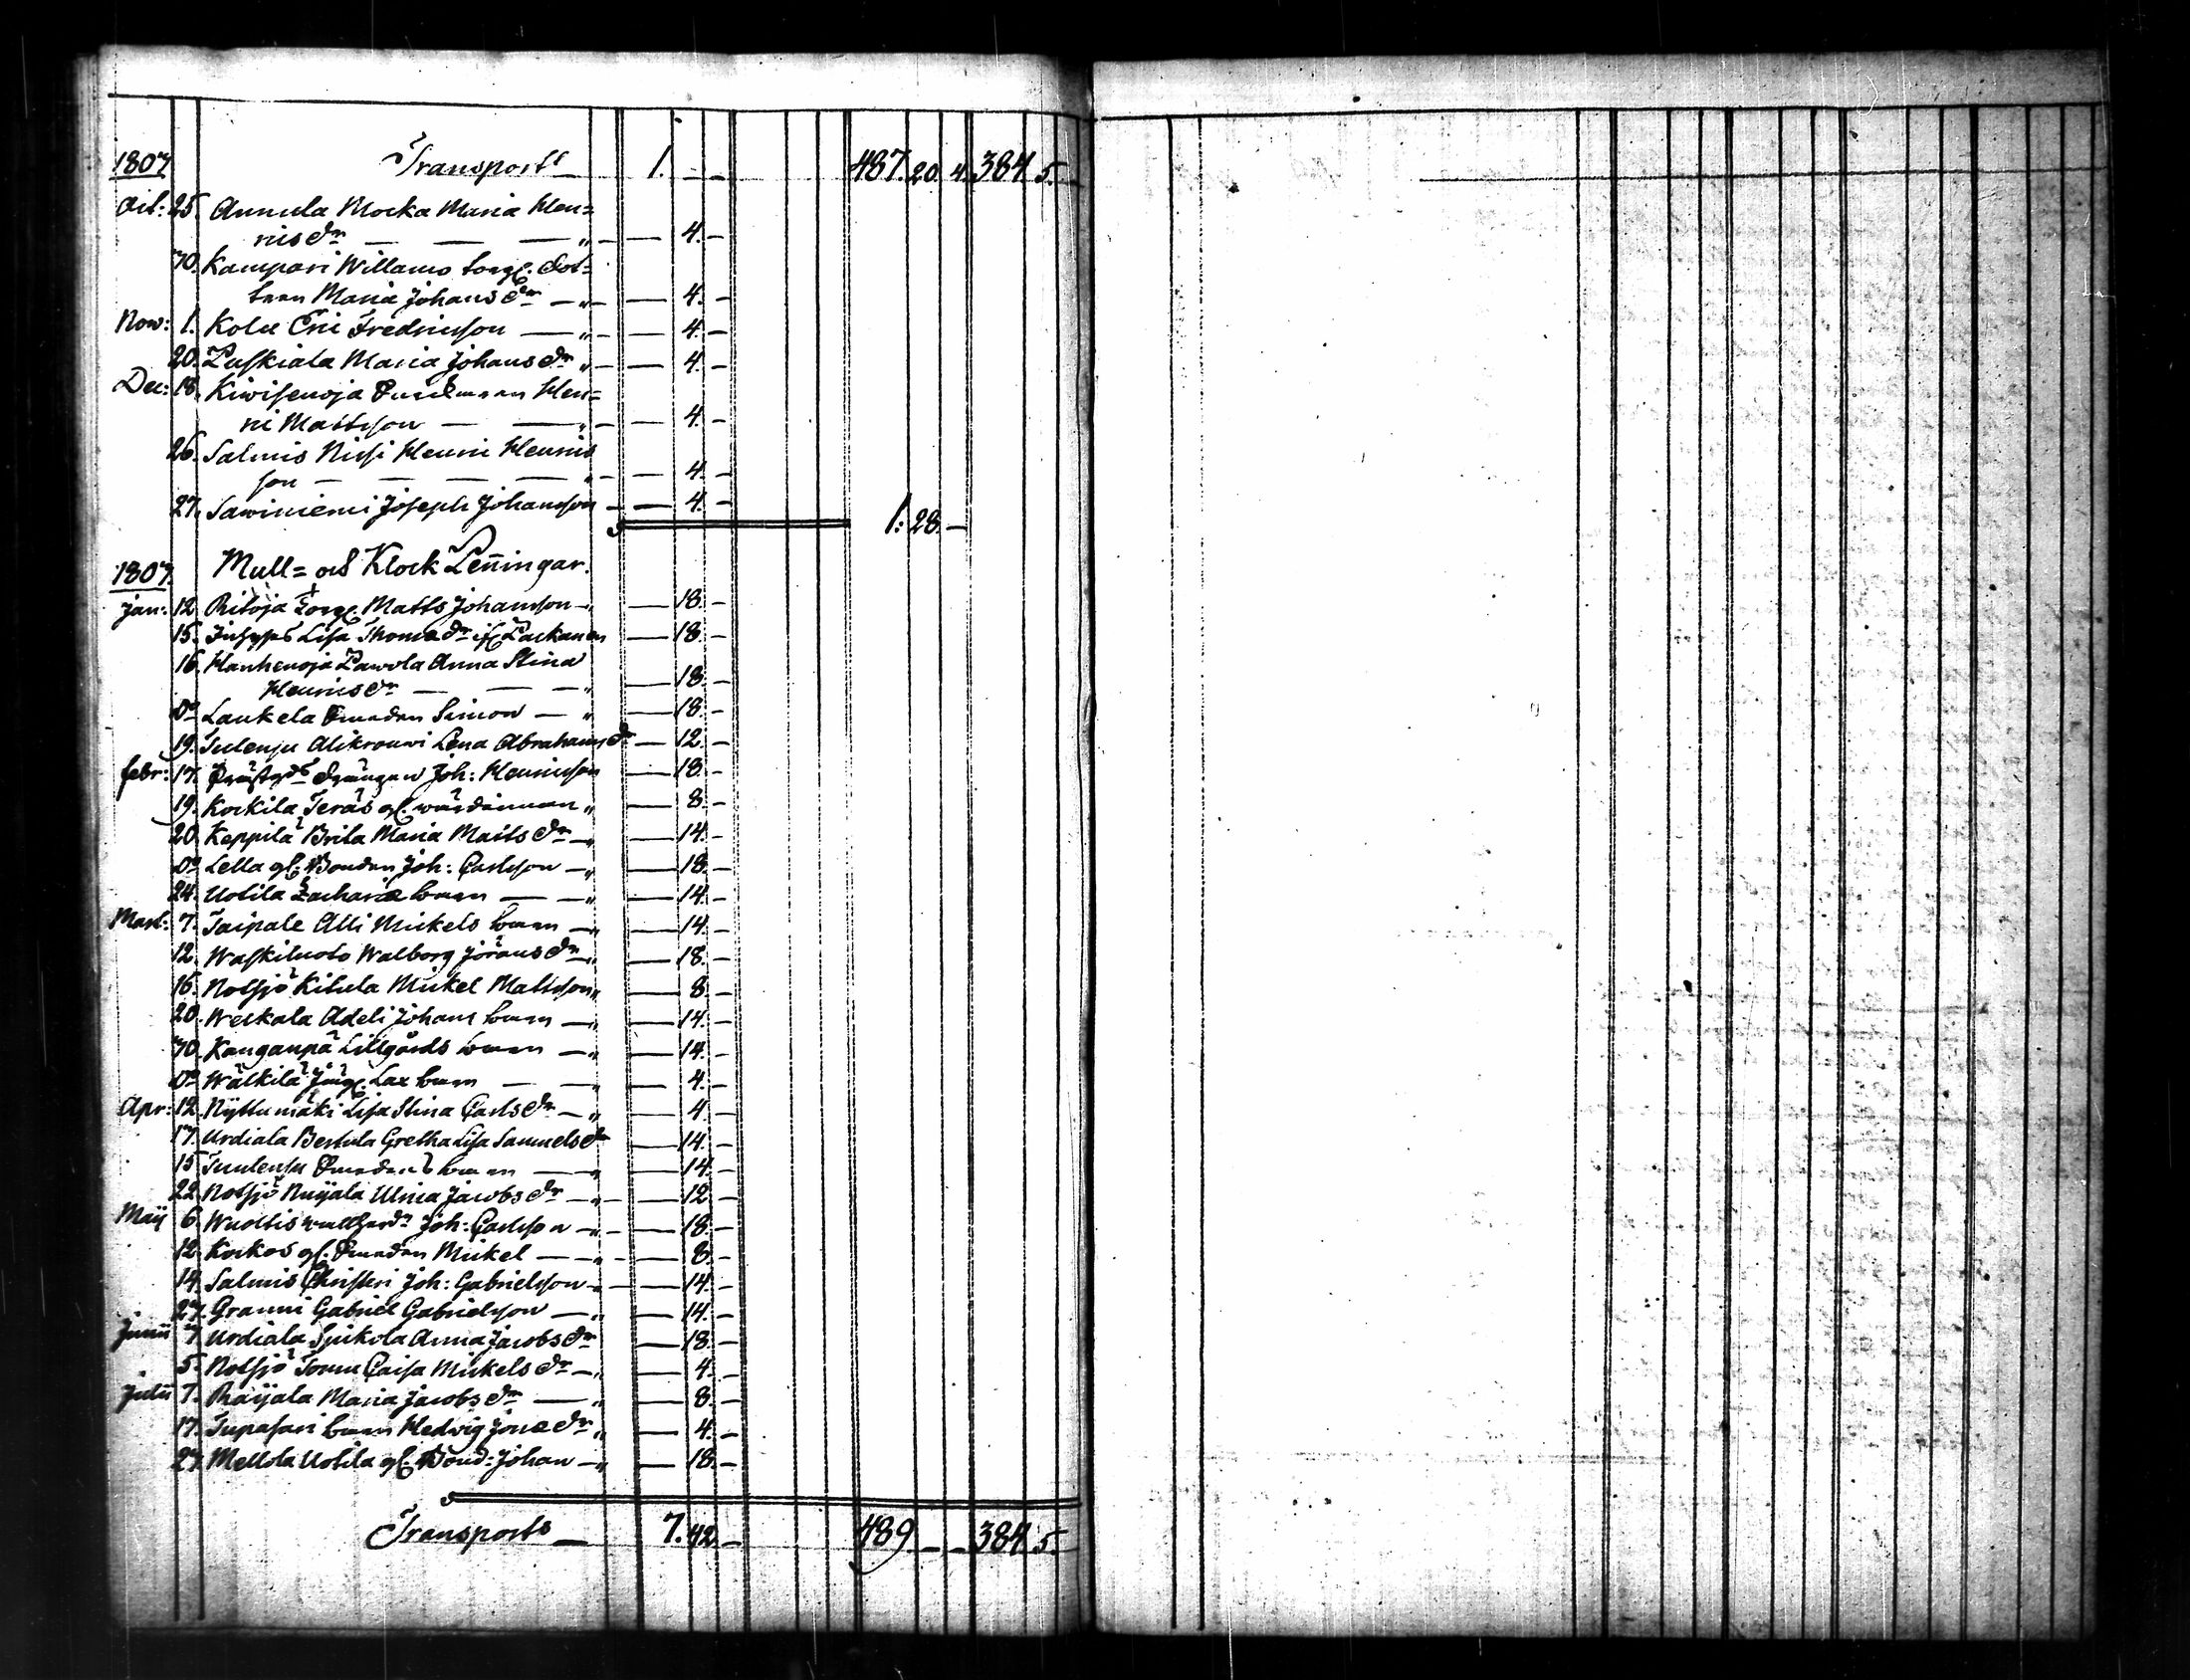 1807 Transport 1. — — 487. 20. 4. 384. 5.
Oct: 25. Annula Mocka Maria Hen=
ricsdr — — — " — — 4. —
30. Kampari Willamo torp. Dot=
tern Maria Johansdr — " — — 4. —
Nov: 1. Kolu Eric Fredricsson — " — — 4. —
20. Puskiala Maria Johansdr " — — 4. —
Dec: 18. Kiwisenoja Hen=
ric Mattsson — — " — — 4. —
26. Salmis Nissi Henric Henrics
son — — — — " — — 4. —
27. Sawiniemi Joseph Johansson — — 4. —
1: 28. —
1807. Mull= och Klock Penningar.
Jan: 12. Ritoja Torp. Matts Johansson — " — 18. —
15. Lisa Thomædr — 18. —
16. Hanhenoja Pawola Anna Stina
Henricsdr — — — " — 18. —
Do Laukela Smeden Simon — " — 18. —
19. Tulensu Alikrouwi Lena Abrahamsdr — 12. —
Febr: 17. Prästgds Drängen Joh: Henricsson — 18. —
19. Kockila Teräs gl. wärdinnan " — 8. —
20. Keppilä Brita Maria Mattsdr — " — 14. —
Do Lella gl. Bonden Joh: Carlsson — " — 18. —
24. Uotila Zachariæ barn — — " — 14. —
Mart: 7. Taipale Alli Mickels barn — " — 14. —
12. Waskiluoto Walborg Jöransdr — " — 18. —
16. Notsjö Kitula Mickel Mattsson " — 8. —
20. Weckala Adeli Johans barn — " — 14. —
30. Kanganpä Lillgårds barn — " — 14. —
Do Wälkilä Lax barn — — " — 4. —
Apr: 12. Nyttumäki Lisa Stina Carlsdr — " — 4 —
17. Urdiala Bertula Gretha Lisa Samuelsdr — 14. —
15 Tuulensu Smedens barn — " — 14. —
22. Notsjö Nuijala Ulrica Jacobsdr — " — — 12 —
Maij 6. Joh: Carlsson — " — — 18. —
12. Kockos gl. Smeden Mickel — " — — 8 —
14. Salmis Christeri Joh: Gabrielsson — — 14. —
27. Granni Gabriel Gabrielsson — " — 14. —
Junii 4. Urdiala Spikola Anna Jacobsdr — 18. —
5. Notsjö Tomu Caisa Mickelsdr — " — 4. —
Julii 7. Raijala Maria Jacobsdr — " — 8. —
17. Tupasari barn Hedwig Jonædr " — 4. —
27. Mellola Uotila gl. Bond: Johan — " — 18. —
Transport — 7. 42. — 489. — — 384. 5.